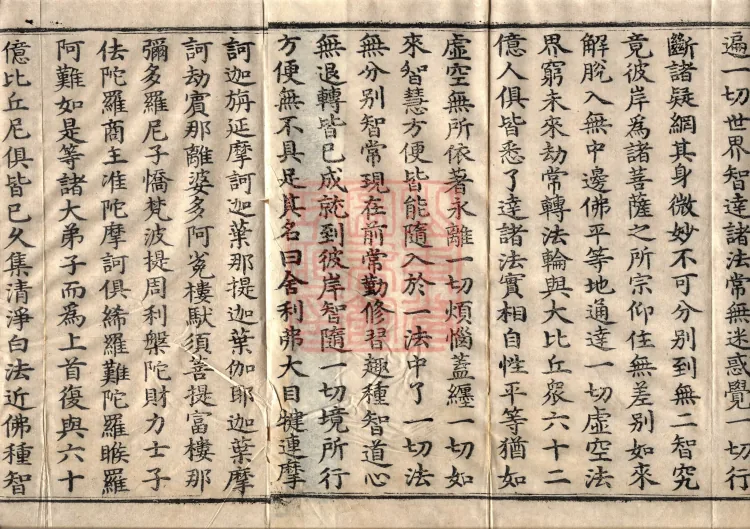 遍一切世界智達諸法常無迷惑覺一切行
斷諸疑網其身微妙不可分別到無二智究
竟彼岸為諸菩薩之所宗仰住無差別如來
解脫入無中邊佛平等地通達一切虛空法
界窮未來劫常轉法輪與大比丘眾六十二
億人俱皆悉了達諸法實相自性平等猶如
虛空無所依著永離一切煩惱蓋纏一切如
來智慧方便皆能隨入於一法中了一切法
無分別智常現在前常勤修習趣種智道心
無退轉皆已成就到彼岸智隨一切境所行
方便無不具足其名曰舍利弗大目犍連摩
訶迦旃延摩訶迦葉那提迦葉伽耶迦葉摩
訶劫賓那離婆多阿㝹樓馱須菩提富樓那
彌多羅尼子憍梵波提周利槃陀財力士子
佉陀羅商主准陀摩訶俱絺羅難陀羅睺羅
阿難如是等諸大弟子而為上首復與六十
億比丘尼俱皆已久集清淨白法近佛種智